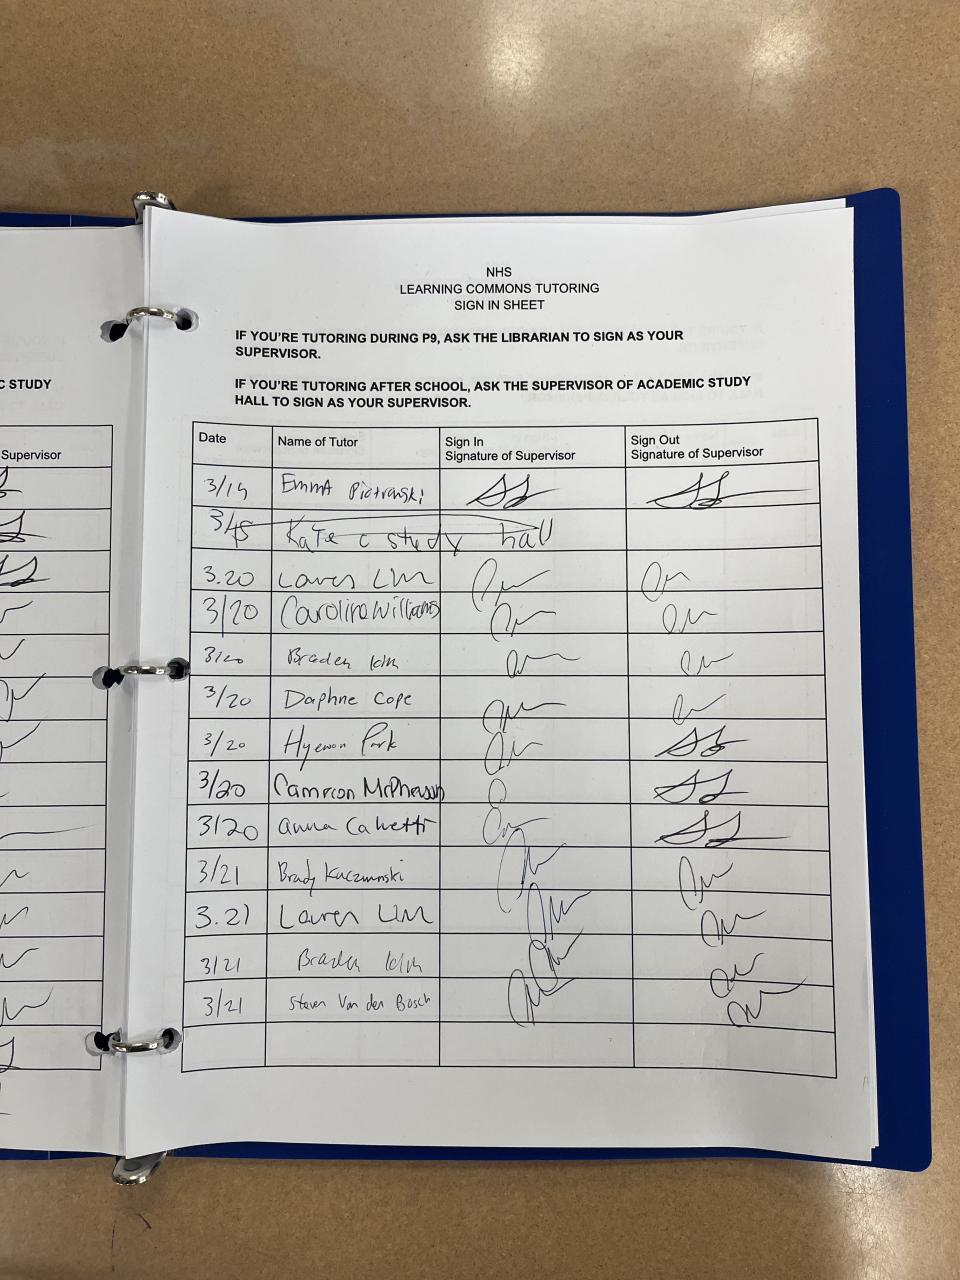 NHS
LEARNING COMMONS TUTORING
SIGN IN SHEET
IF YOU'RE TUTORING DURING P9, ASK THE LIBRARIAN TO SIGN AS YOUR
SUPERVISOR.
IF YOU'RE TUTORING AFTER SCHOOL, ASK THE SUPERVISOR OF ACADEMIC STUDY
HALL TO SIGN AS YOUR SUPERVISOR.
C STUDY
Supervisor
Date Name of Tutor Sign In Sign Out
Signature of Supervisor Signature of Supervisor
3/19 Emma Piotrowski
Kate c study hall
3.20 Lauren Lim
3/20 Caroline Williams
3/20 Braden Kim
3/20 Daphne Cope
3/20 Hyewon Park
3/20 Cameron McPherson
3/20 Anna Calvetti
3/21 Brady Kaczmarski
3.21 Lauren Lim
3/21 Braden Kim
3/21 Steven Van den Bosch